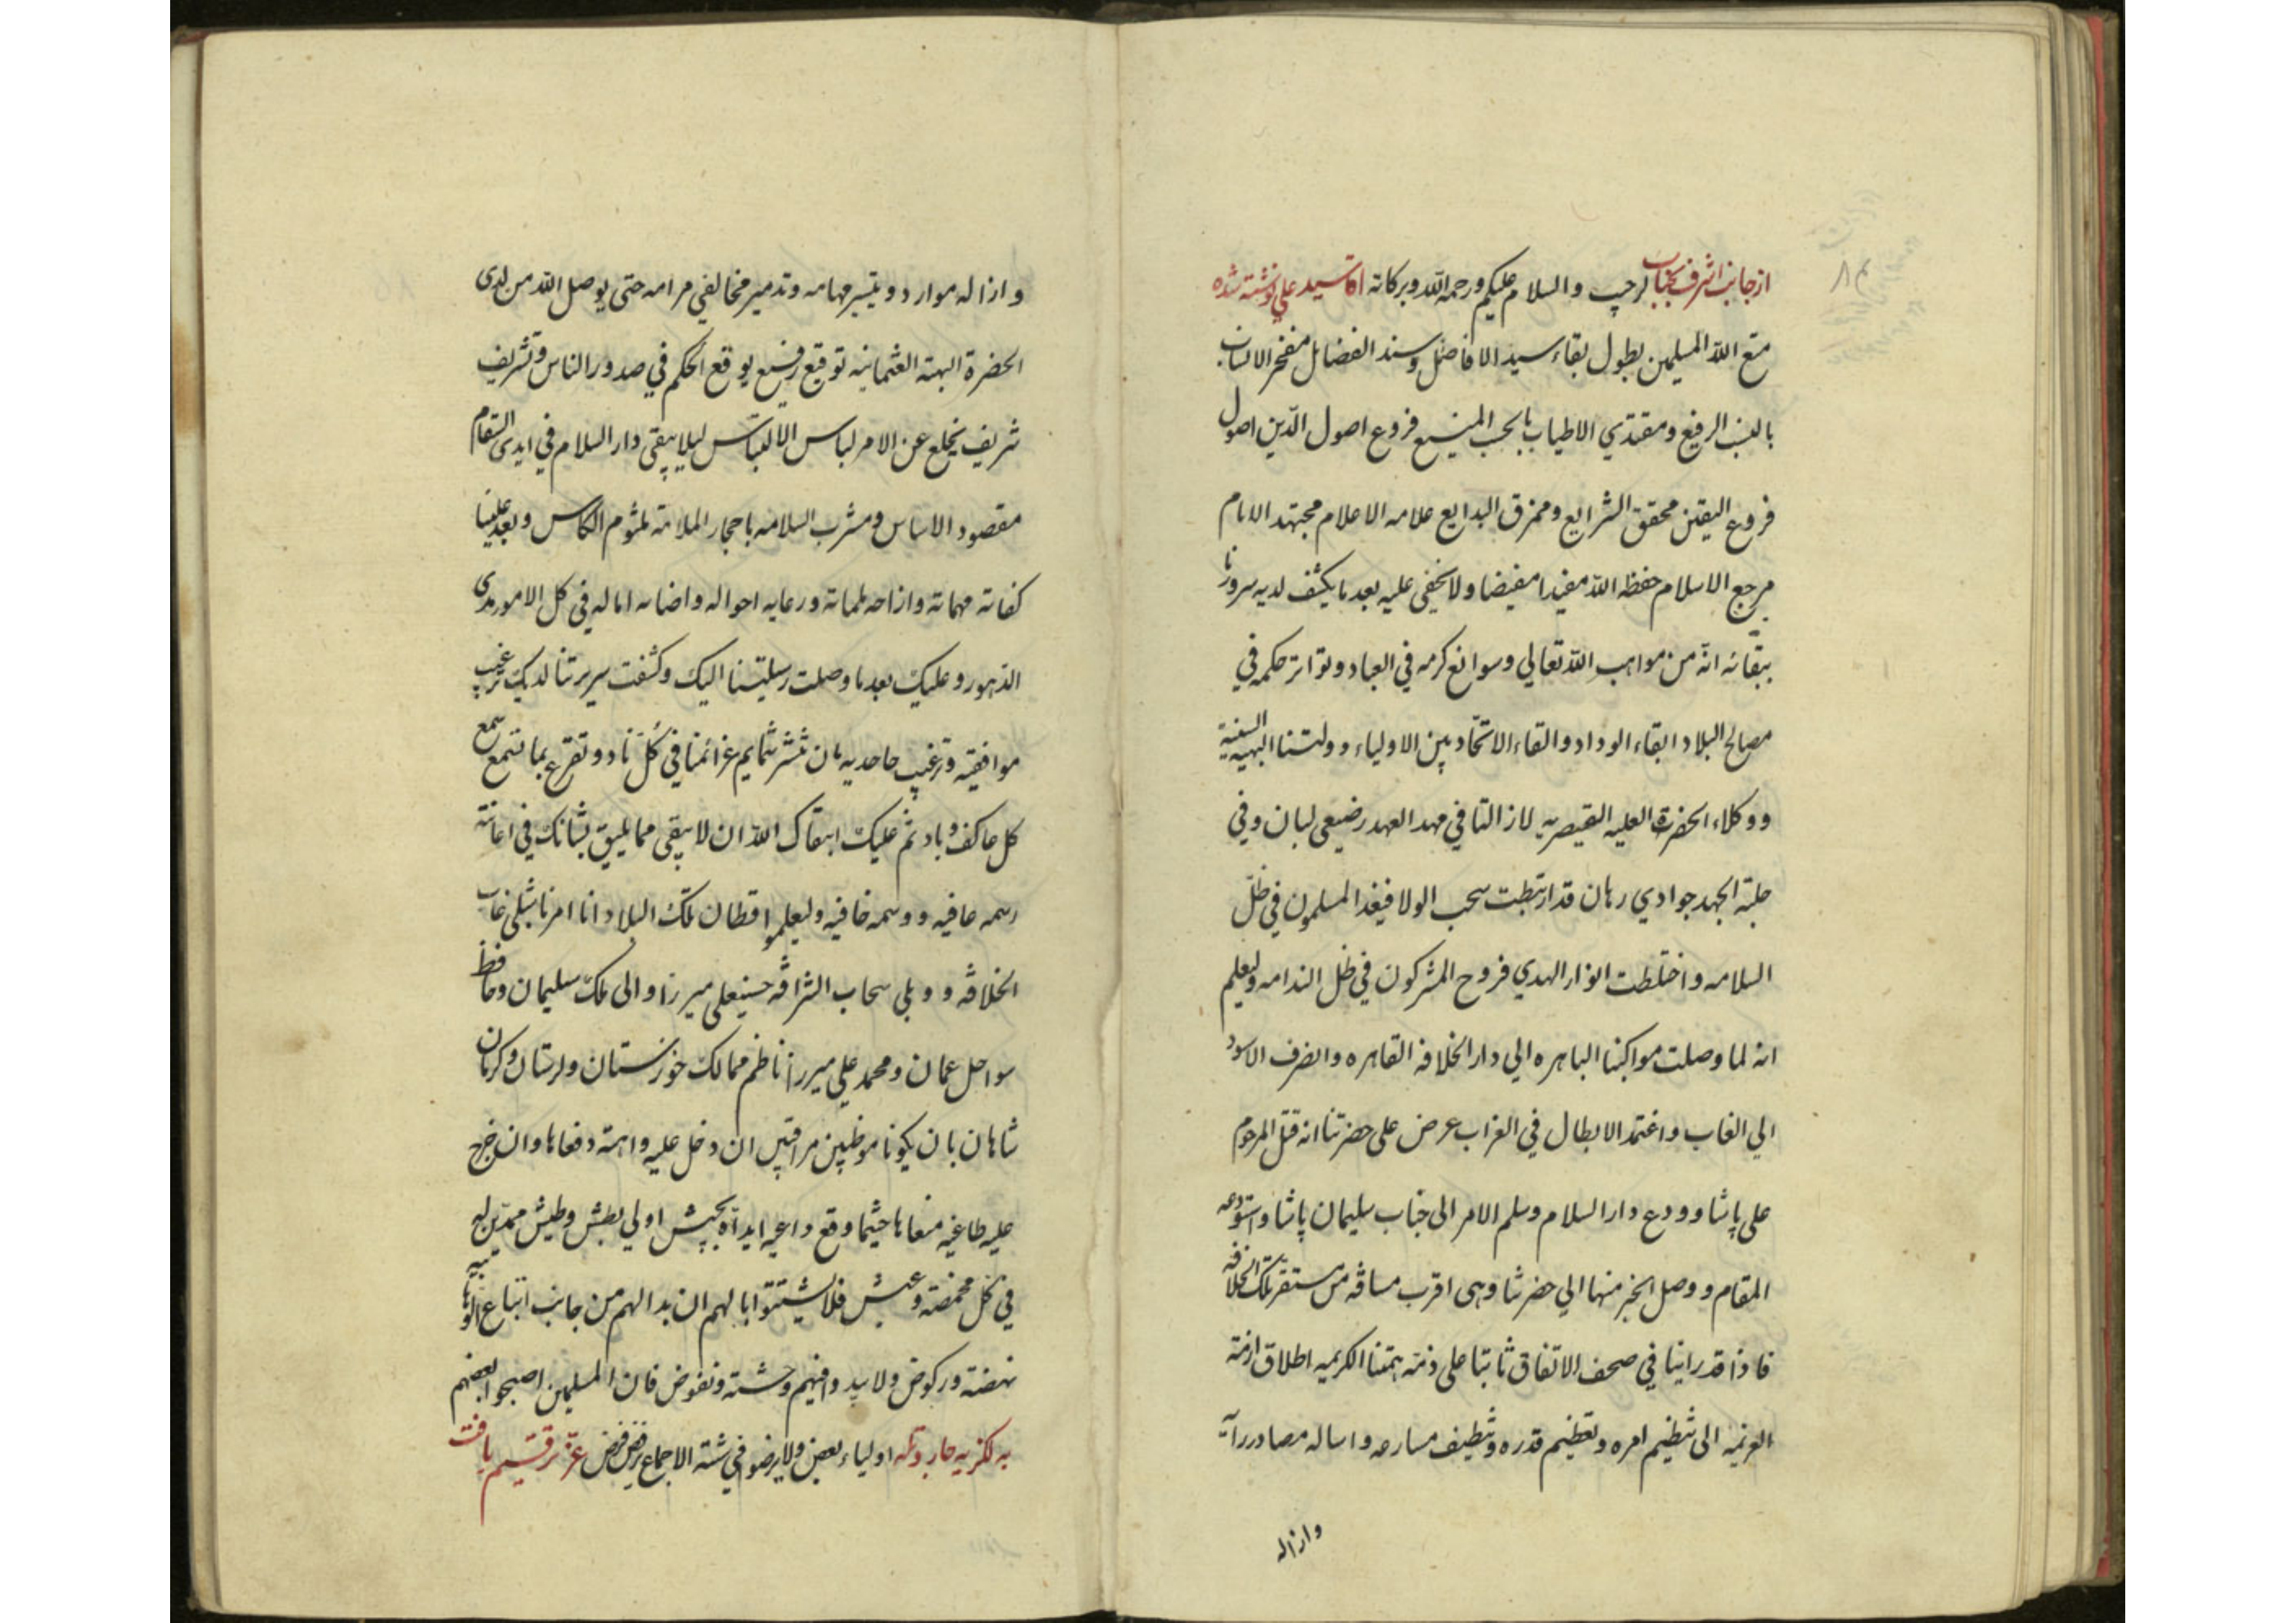 از جانب اشرف بجناب لرحب والسلام عليكم ورحمة الله وبركاته اقا سيد علي نوشته شده
متع الله المسلمين بطول بقاء سيد الافاضل وسند الفضايل مفخر الانساب
بالنسب الرفيع ومقتدي الاطياب بالحسب المنيع فروع اصول الدّين اصول
فروع اليقين محقق الشرايع وممزق البدايع علامه الاعلام مجتهد الانام
مرجع الاسلام حفظه الله مفيدا مفيضا ولا يخفى عليه بعد ما يكشف لديه سرورنا
ببقائه انّه من مواهب الله تعالي وسوانع كرمه في العباد وتواتر حكمه في
مصالح البلاد ابقاء الوداد والقاء الاتحاد بين الاولياء دولتنا البهيه السنية
ووكلاء الحضرة العليه القيصريه لازالتا في مهد العهد رضيعي لبان وفي
حلبة الجهد جوادي رهان قد ارتبطت سحب الولا فيغد المسلمون في ظلّ
السلامه واختلطت انوار الهدي فروح المشركون في ظل الندامه وليعلم
انه لما وصلت مواكبنا الباهره الي دار الخلافه القاهره وانصرف الاسود
الي الغاب واغتمد الابطال في القراب عرض على حضرتنا انه قتل المرحوم
علي پاشا وودع دار السلام وسلم الامر الى جناب سليمان پاشا واستودعه
المقام ووصل الخبر منها الي حضرتنا وهى اقرب مسافه من مستقر تلك الخلافه
فاذا قد راينا في صحف الاتفاق ثابتا على ذمة همتنا الكريمه اطلاق ازمة
العزيمه الى تنظيم امره وتعظيم قدره وتنظيف مسارحه واساله مصادر رايه
وازاله
وازاله موارد وتيسير مهامه وتدمير مخالفي مرامه حتى يوصل الله من لدى
الحضرة البهية العثمانيه توقيع رفيع يوقع الحكم في صدور الناس وتشريف
شريف يخلع عن الامر لباس الالتباس ليلا يبقى دار السلام في ايدى السقام
مقصود الاساس ومشرب السلامه باحجار الملامة مثلوم الكاس وبعد علينا
كفاته مهماته وازاحه ملماته ورعايه احواله واضائه اماله في كل الامور مدى
الدهور وعليك بعد ما وصلت رسليتنا اليك وكشفت سريرتنا لديك ترغيب
موافقيه وترغيب جاحديه بان تنشر تمايم عزائمنا في كل ناد وتقرع بما تسمع سمع
كل عاكف وباد ثم عليك ابقاك الله ان لا يبقى مما يليق بشانك في اعانة
رسمه عافيه ووسمه خافيه وليعلموا قطان تلك البلاد انا امرنا شبلي غاب
الخلافه ووبلي سحاب الشرافه حسنعلى ميرزا والى ملك سليمان وحافظ
سواحل عمان ومحمد علي ميرزا ناظم ممالك خوزستان ولرستان وكرمان
شاهان بان يكونا موظبين مراقبين ان دخل عليه داهمة دفعاها وان خرج
عليه طاغيه منعاها حيثما وقع داعيه ايداه بجيش اولي بطش وطيش ممدّين له
في كل مخمصة وعيش فلا يشتتوا بالهم ان بدا لهم من جانب اتباع الوهابيه
نهضة وركوض ولا بيد وافيهم وحشة ونفوض فان المسلمين اصبحوا بعضهم
اولياء بعض ولا يرضوا في شتة الاجماع برفض فرض عزّ ترقيم يافت